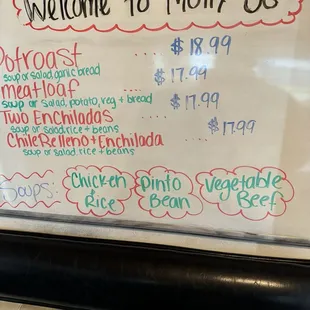 Welcome to Molly Bs
Potroast .... $18.99
soup or salad, garlic bread
meatloaf .... $17.99
soup or salad, potato, veg + bread
Two Enchiladas .... $17.99
soup or salad rice + beans
Chile Relleno + Enchilada .... $17.99
soup or salad rice + beans
Soups:
Chicken Rice
Pinto Bean
Vegetable Beef